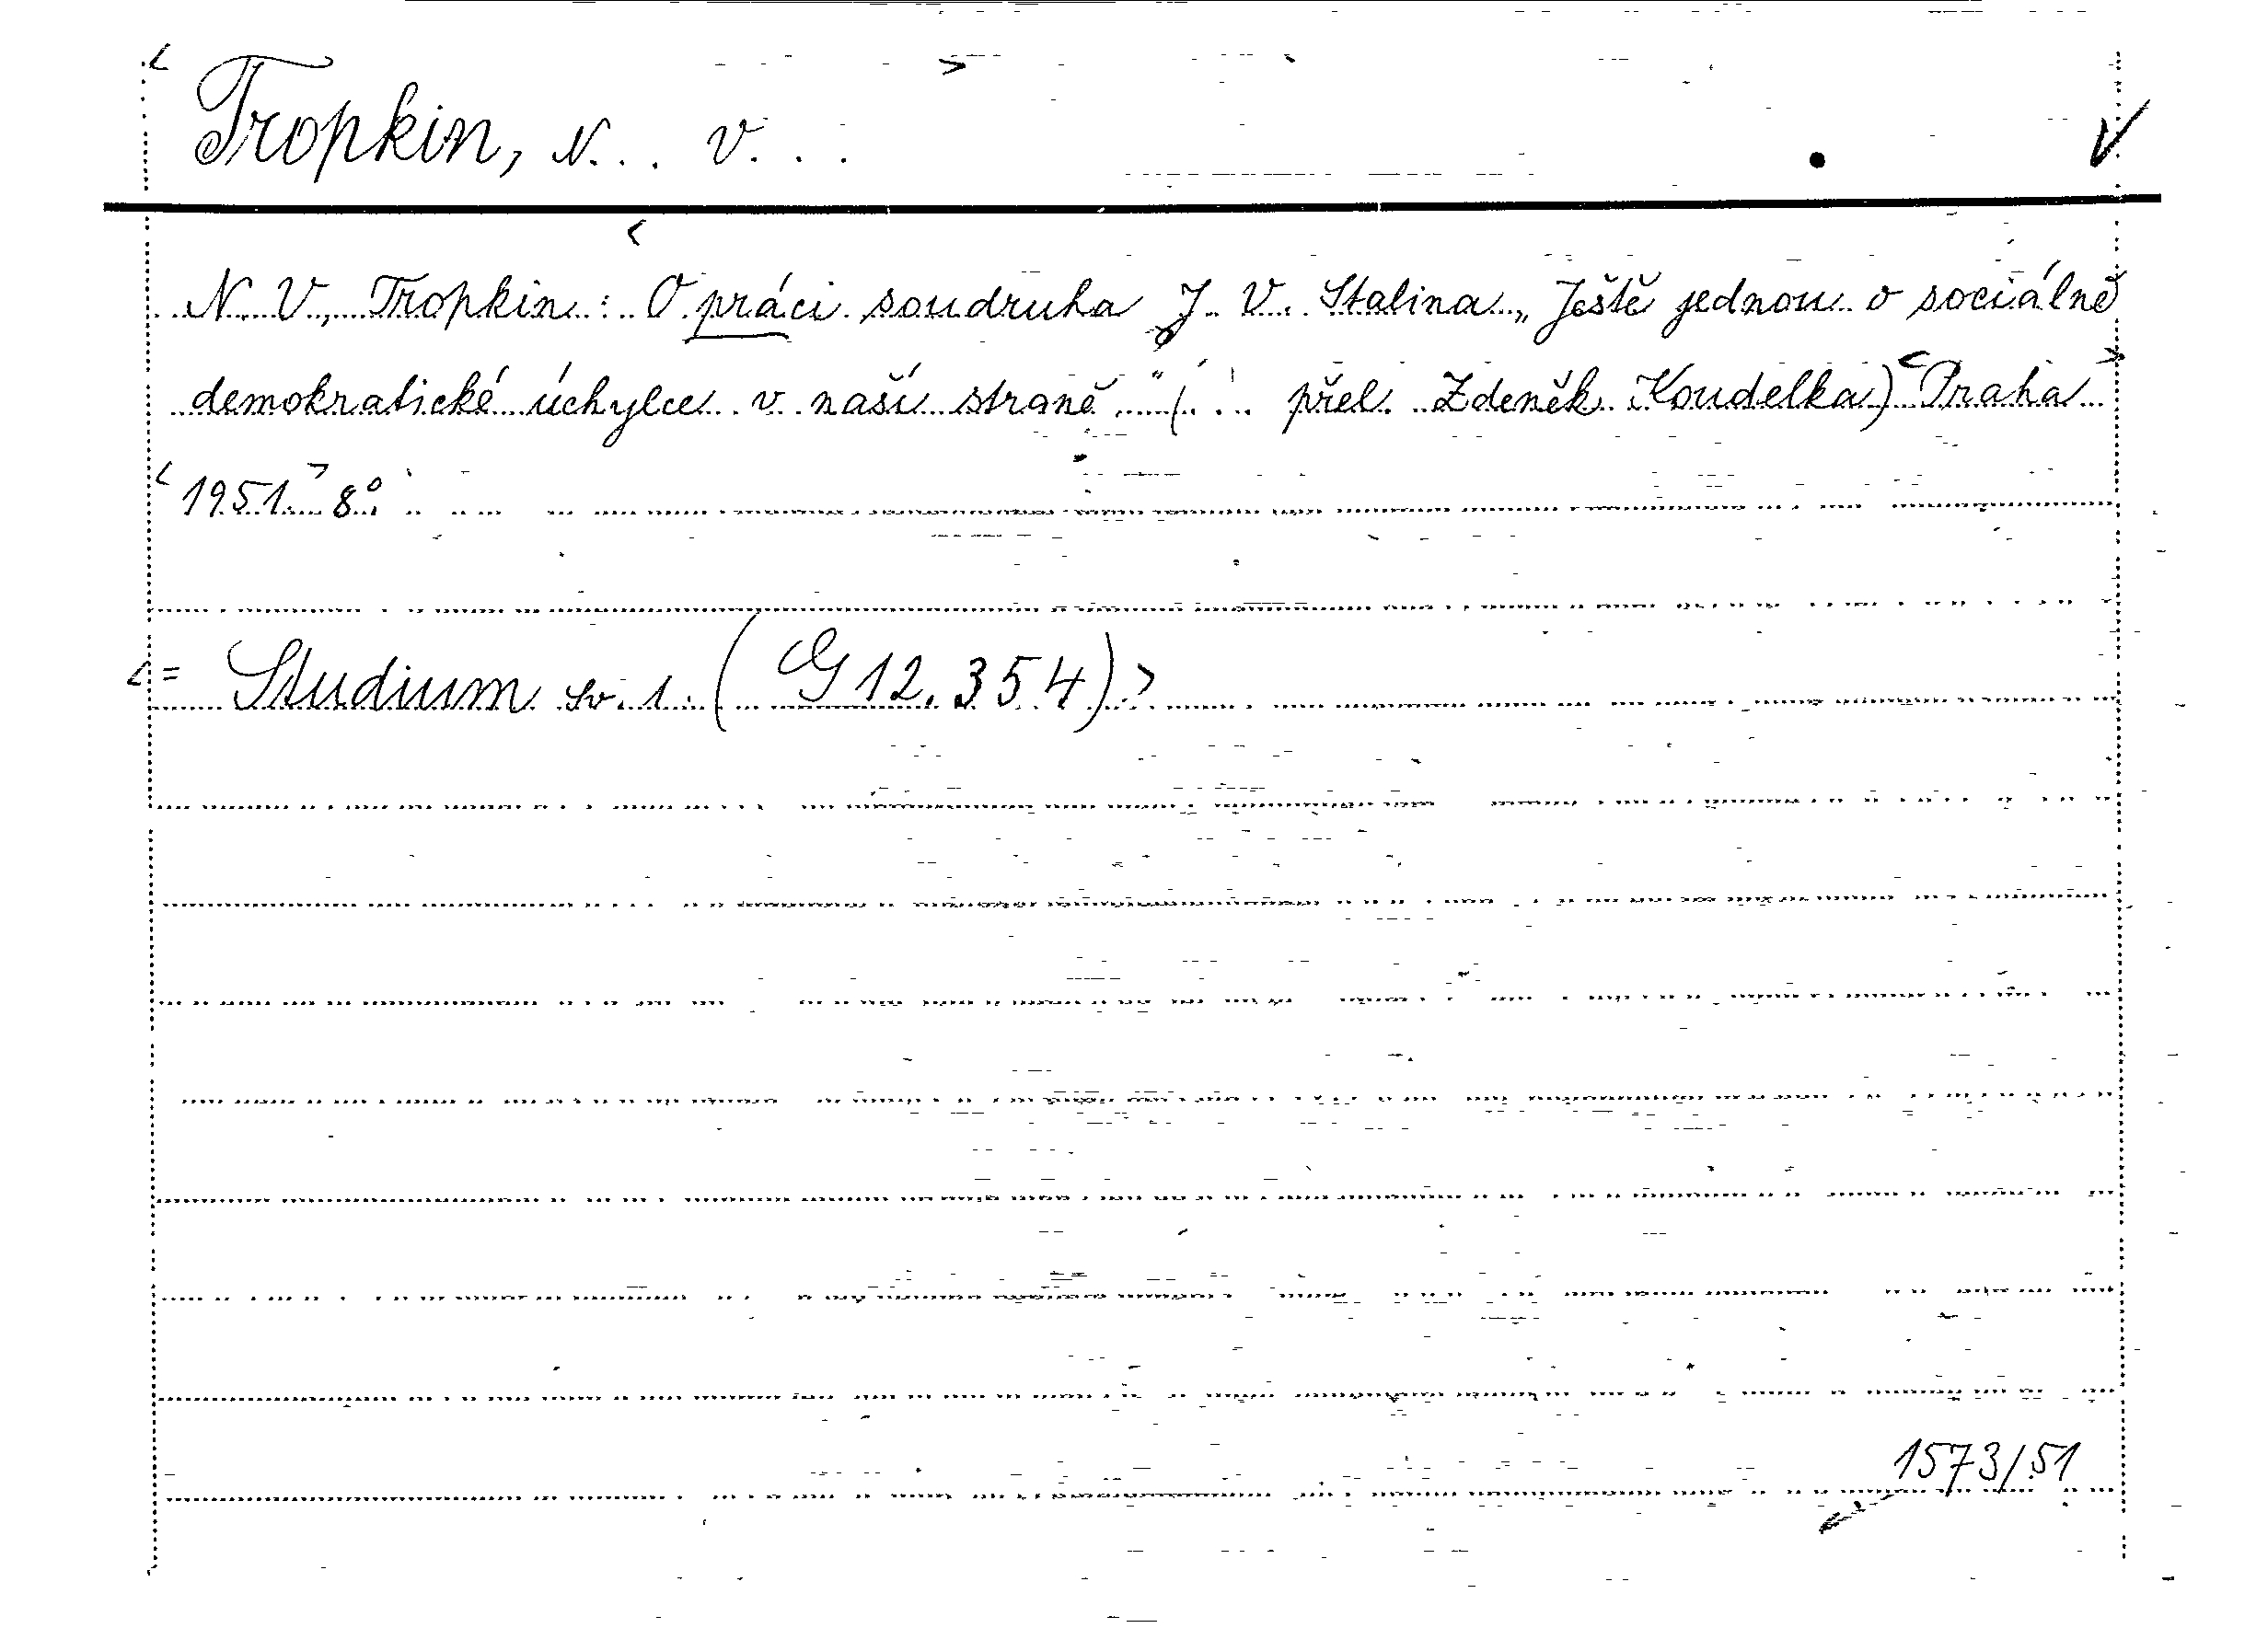 Tropkin, N. . . V. . .
N. V. Tropkin: O práci soudruha J. V. Stalina „Ještě jednou o sociálně
demokratické úchylce v naší straně." (. . . přel. Zdeněk Koudelka) Praha
1951. 8°.
= Studium sv. 1. (G 12.354)
1573/51